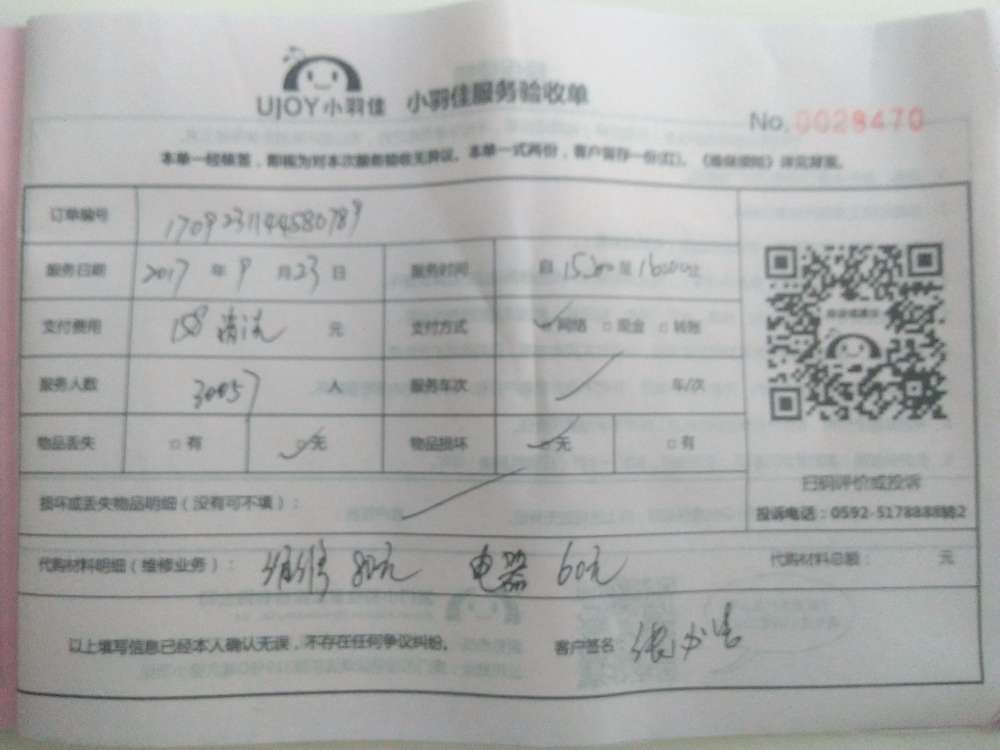 UJOY小羽佳 小羽佳服务验收单
No. 0028470
本单一经核签，即视为对本次服务验收无异议。本单一式两份，客户留存一份(红)。《维保须知》详见背面。
订单编号 1709231144580789
服务日期 2017 年 9 月 23 日 服务时间 自 15:00 至 16:00
支付费用 158 清洗 元 支付方式 网络 □ 现金 □ 转账
服务人数 人 服务车次 车/次
物品丢失 □ 有 □ 无 物品损坏 □ 无 □ 有
扫码评价或投诉
损坏或丢失物品明细（没有可不填）：
投诉电话：0592-5178888转2
代购材料明细（维修业务）： 维修 80元 电器 60元 代购材料总额： 元
以上填写信息已经本人确认无误，不存在任何争议纠纷。 客户签名：